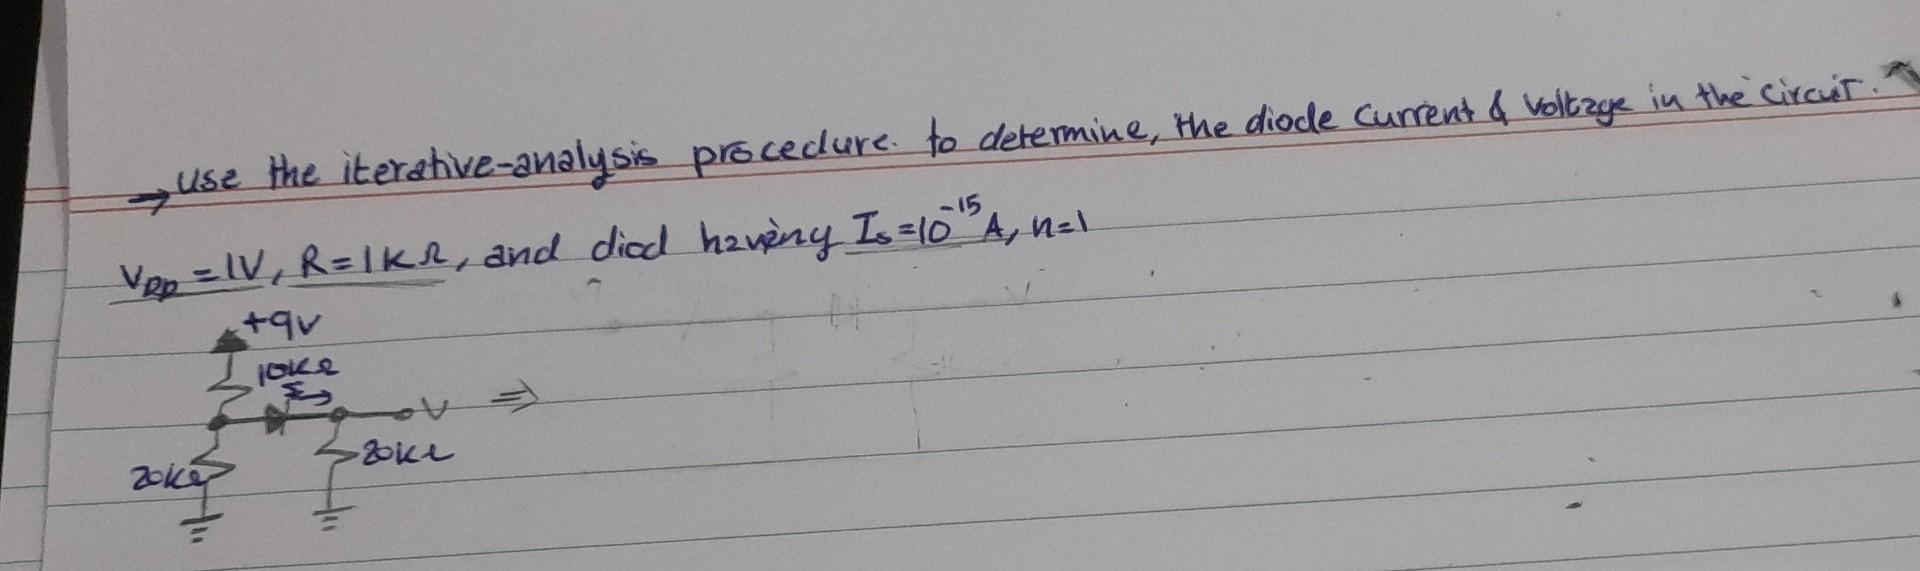 → Use the iterative-analysis procedure. to determine, the diode current & voltzge in the circuit.
VDD = 1V, R = 1KΩ, and diod hzving Is = 10^-15 A, n=1
+9v
10KΩ
I →
V ⇒
20KΩ
20KΩ